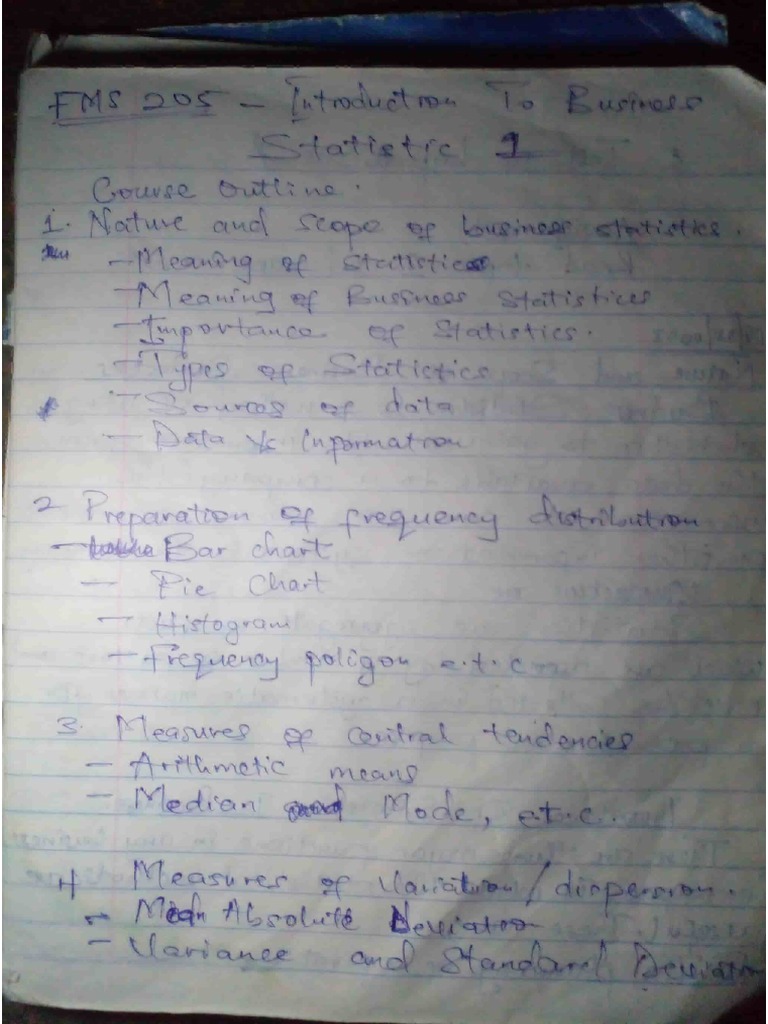 FMS 205 - Introduction To Business
Statistic 1
Course Outline.
1. Nature and Scope of business statistics.
- Meaning of Statistics
- Meaning of Business Statistices
- Importance of Statistics.
- Types of Statistics
- Sources of data
- Data Vs Information
2 Preparation of frequency distribution
- Bar chart
- Pie Chart
- Histogram
- Frequency poligon e.t.c
3. Measures of central tendencies
- Arithmetic means
- Median and Mode, e.t.c.
4 Measures of Variation/dispersion.
- Mean Absolute Deviation
- Variance and Standard Deviation